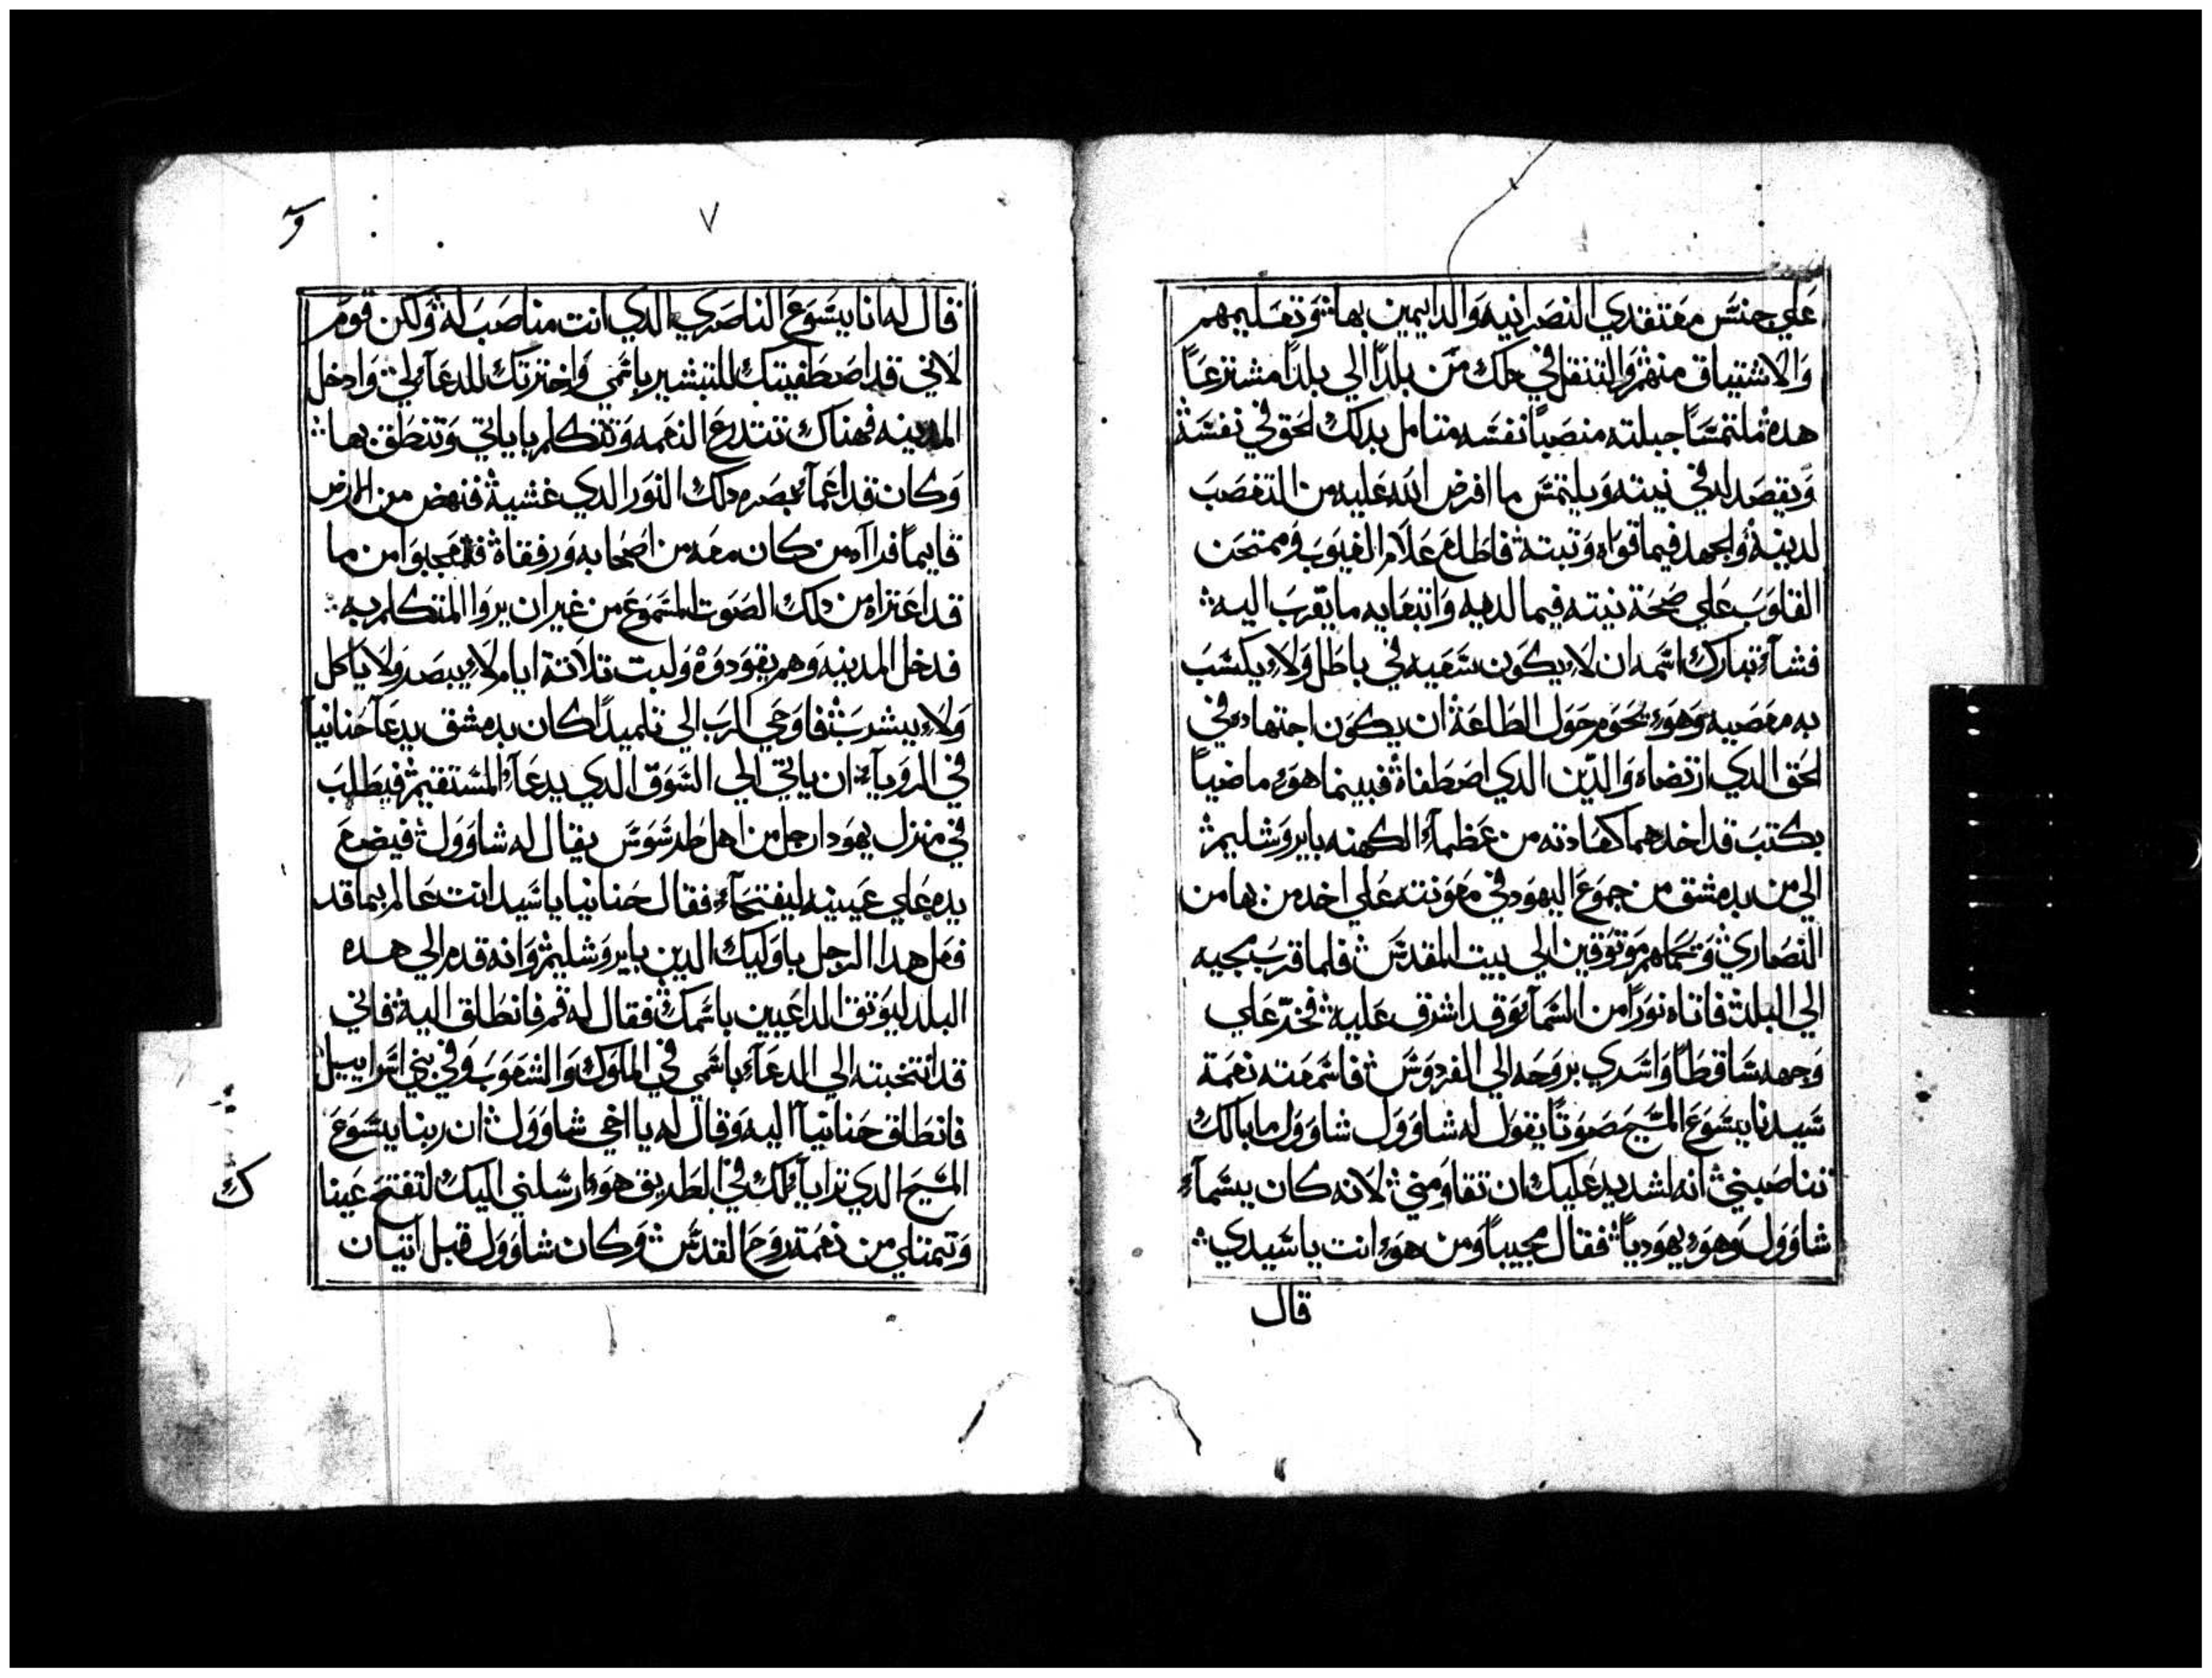 علي جنس معتقدي النصرانيه والداييمين بها وتعليمهم
والاشتياق منهم والتنقل في دلك من بلدا الي بلدا مشترعا
هده ملتمسا جبلته منصبا نفسه متامل بدلك الحق في نفسه
ويقصد له في نيته ويلتمس ما افرض الله عليه من التعصب
لدينه والجهد فيما قواه وتبته فاطلع علام الغيوب وممتحن
القلوب علي صحة نيته فيما لديه وابتغايه ما يقرب اليه
فشآء تبارك اسمه ان لا يكون سعيه في باطل ولا يكسب
به معصيه وهو يحوم حول الطاعة ان يكون اجتهاده في
الحق الدي ارتضاه والدين الدي اصطفاه فبينما هو ماضيا
بكتب قد اخدهما كعادته من عظمآء الكهنه بايروشليم
الي من بدمشق من جموع اليهود في معونته علي اخد من بها من
النصاري وحملهم موتوقين الي بيت المقدس فلما قرب مجيه
الي البلد فاتاه نورا من السمآء وقد اشرق عليه فخر علي
وجهه ساقطا واسري بروحه الي الفردوس فاسمعته نعمة
سيدنا يسوع المسيح صوتا يقول له شاوول شاوول ما بالك
تناصبني انه لشديد عليك ان تقاومني لانه كان يسمآء
شاوول وهو يهوديا فقال مجيبا ومن هو انت يا سيدي
قال
٧
قال له انا يسوع الناصري الدي انت مناصب له ولكن قوم
لاني قد اصطفيتك للتبشير باسمي واخترتك للدعآء لي وادخل
المدينه فهناك تتدرع النعمه وتتكلم باياتي وتنطق بها
وكان قد اعمآء بصره دلك النور الدي غشيه فنهض من الارض
قايما فراآه من كان معه من اصحابه ورفقاه فتعجبوا من ما
قد اعتراه من دلك الصوت المسموع من غير ان يروا المتكلم به
فدخل المدينه وهم يقودوه ولبت تلاتة ايام لا يبصر ولا ياكل
ولا يشرب فاوحي الرب الي تلميدا كان بدمشق يدعا حنانيا
في الرويآء ان ياتي الي السوق الدي يدعآء المستقيم فيطلب
في منزل يهودا رجل من اهل طرسوس يقال له شاوول فيضع
يده علي عينيه ليفتحآء فقال حنانيا يا سيد انت عالم بما قد
فعل هدا الرجل باوليك الدين بايروشليم وانه قدم الي هده
البلد ليوتق الداعيين باسمك فقال له قم فانطلق اليه فاني
قد انتخبته الي الدعآء باسمي في الملوك والشعوب وفي بني اسراييل
فانطلق حنانيآ اليه وقال له يا اخي شاوول ان ربنا يسوع
المسيح الدي ترايآء لك في الطريق هو ارسلني اليك لتفتح عينا
وتمتلي من نعمة روح القدس وكان شاوول قبل اتيان